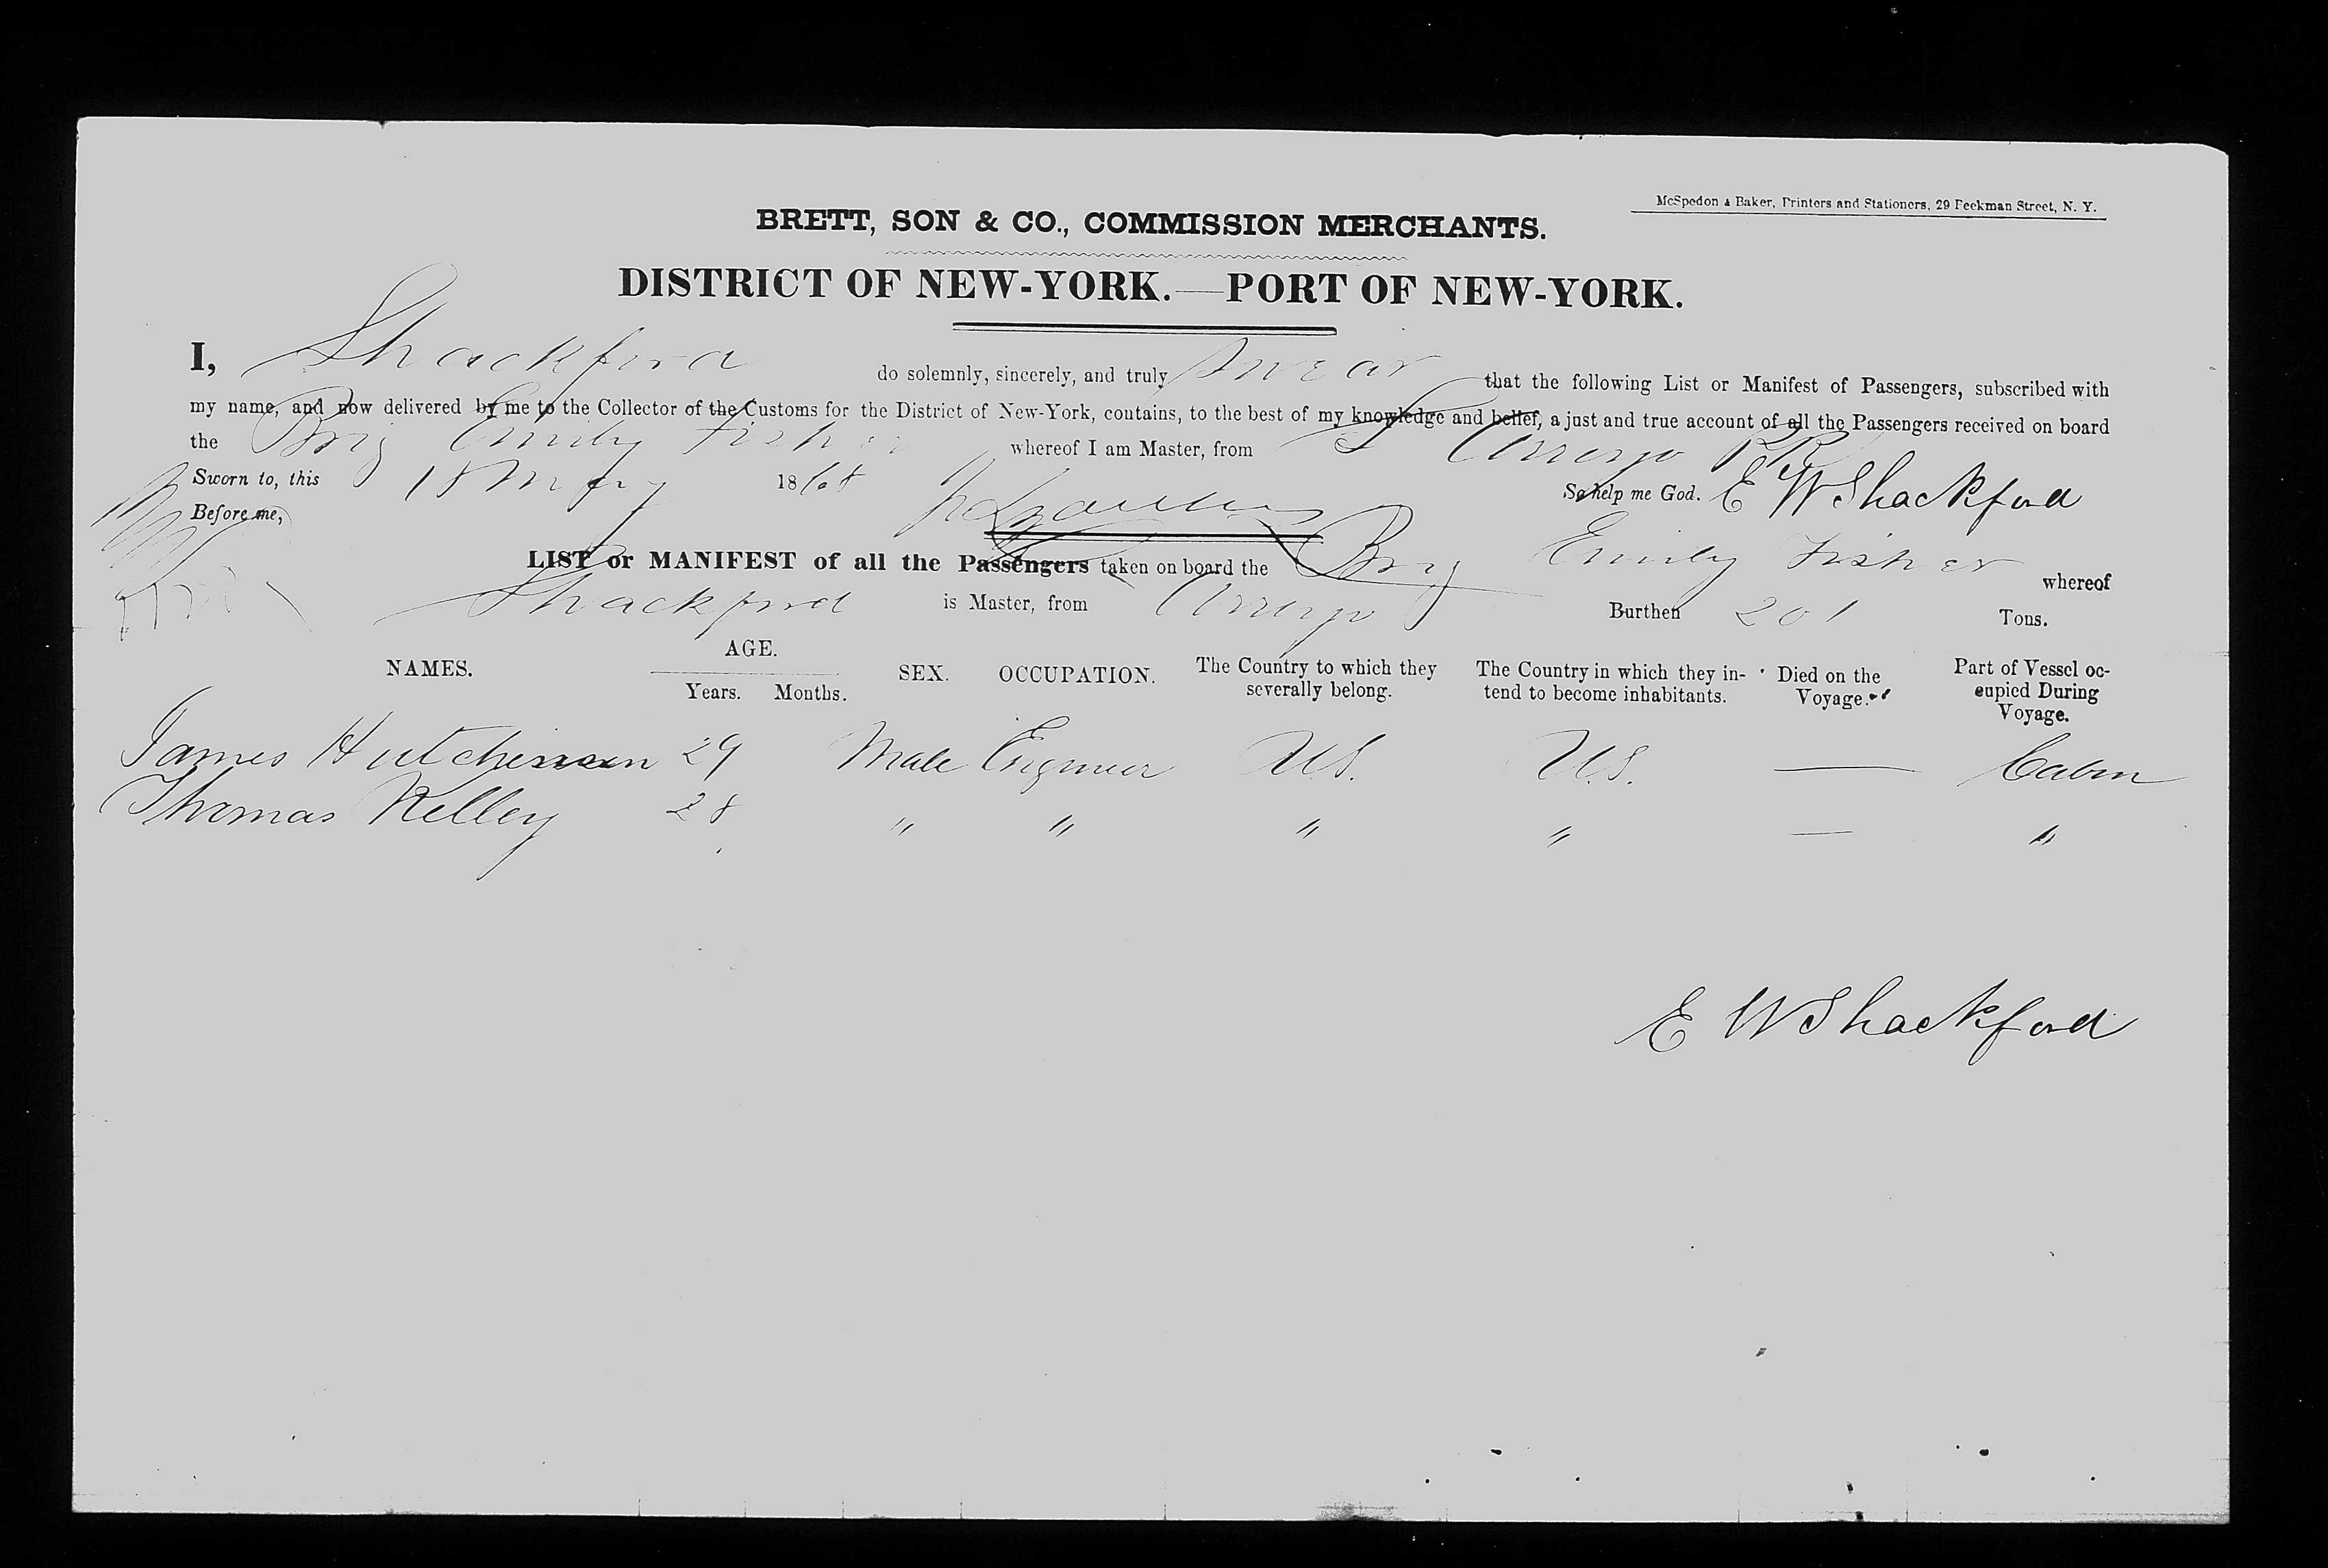 McSpedon & Baker, Printers and Stationers, 29 Beekman Street, N. Y.
BRETT, SON & CO., COMMISSION MERCHANTS.
DISTRICT OF NEW-YORK.—PORT OF NEW-YORK.
I, Shackford do solemnly, sincerely, and truly swear that the following List or Manifest of Passengers, subscribed with
my name, and now delivered by me to the Collector of the Customs for the District of New-York, contains, to the best of my knowledge and belief, a just and true account of all the Passengers received on board
the Brig Emily Fisher whereof I am Master, from Arroyo PR
Sworn to, this 18 May 1868 So help me God. E W Shackford
Before me,
LIST or MANIFEST of all the Passengers taken on board the Brig Emily Fisher whereof
Shackford is Master, from Arroyo Burthen 201 Tons.
NAMES. AGE. Years. Months. SEX. OCCUPATION. The Country to which they severally belong. The Country in which they in-tend to become inhabitants. Died on the Voyage. Part of Vessel oc-cupied During Voyage.
James Hutchinson 29 Male Engineer U.S. U.S. — Cabin
Thomas Kelley 28 " " " " — "
E W Shackford